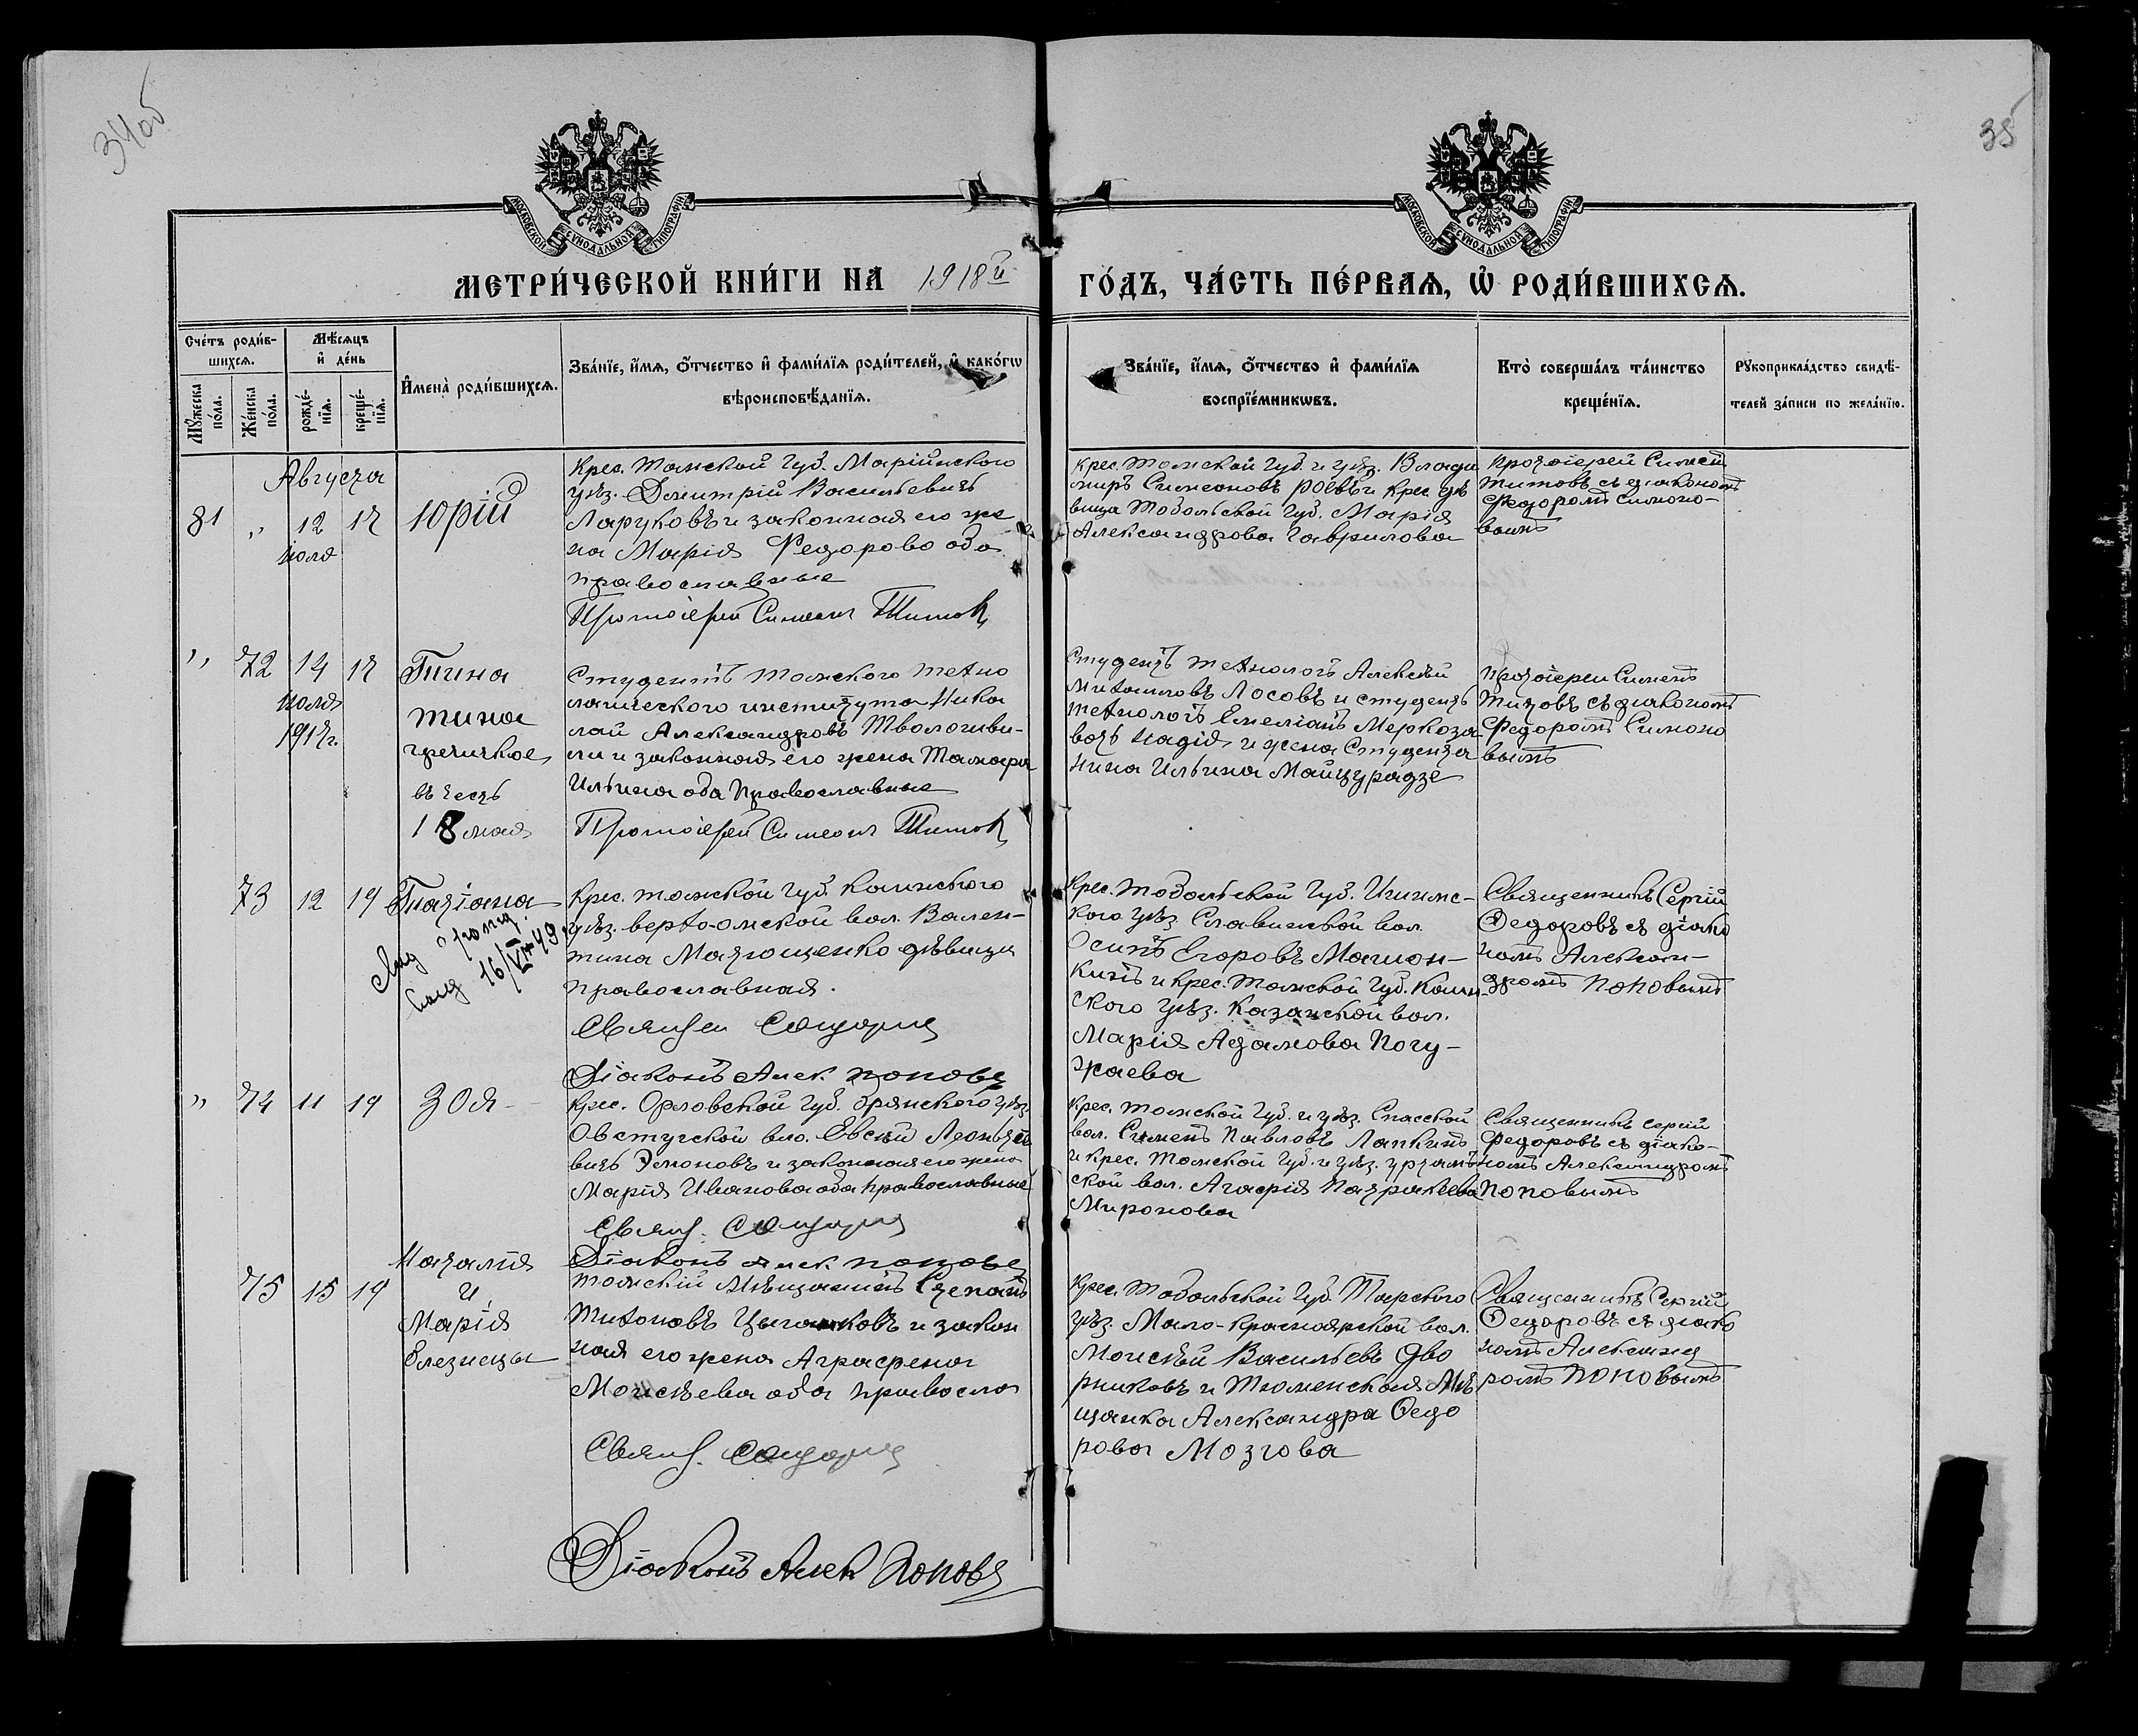 34об
35
МОСКОВСКОЙ СѴНОДАЛЬНОЙ ТИПОГРАФІИ
МОСКОВСКОЙ СѴНОДАЛЬНОЙ ТИПОГРАФІИ
МЕТРИ́ЧЕСКОЙ КНИ́ГИ НА 1918й ГО́ДЪ, ЧА́СТЬ ПЕ́РВАѦ, Ѽ РОДИ́ВШИХСѦ.
Сче́тъ роди́в-
шихсѧ.
Мꙋ́жеска
по́ла.
Же́нска
по́ла.
Мѣ́сѧцъ
и҆ де́нь
рожде́-
нїѧ.
креще́-
нїѧ.
И҆мена̀ роди́вшихсѧ.
Зва́нїе, и҆́мѧ, ѻ҆́тчество и҆ фами́лїѧ роди́телей, и҆ како́гѡ
вѣроисповѣ́данїѧ.
Зва́нїе, и҆́мѧ, ѻ҆́тчество и҆ фами́лїѧ
воспрїе́мникѡвъ.
Кто̀ соверша́лъ та́инство
креще́нїѧ.
Рꙋкоприкла́дство свидѣ́-
телей за́писи по жела́нїю.
Августа
81 " 12 17
июля
Юрій
Крес. Томской Губ. Маріинскаго
уѣз. Димитрій Васильевичъ
Ларуковъ и законная его же
на Марія Федорово оба
православные
Протоіерей Симеонъ Титовъ
Крес. Томской Губ. и уѣз. Влади
миръ Симеоновъ Роевъ и Крес дѣ
вица Тобольской Губ. Марія
Александрова Гаврилова
Протоіерей Симеон
Титовъ съ діакономъ
Федоромъ Симоно-
вымъ
" 72 14 17
июля
1917г.
Тина
тина
гречиское
въ честь
18 мая
Студентъ Томского техно
логического института Нико
лай Александровъ
и законная его жена Тамара
Ильина оба Православные
Протоіерей Симеонъ Титовъ
Студентъ технологъ Алексѣй
Михаиловъ Лосовъ и студентъ
технологъ Емеліанъ
и жена Студента
Нина Ильина Майсурадзе
Протоіереи Симеонъ
Титовъ съ діакономъ
Федоромъ Симоно
вымъ
73 12 19
Татіана
16/VII 49.
Крес. Томской Губ. Каинского
уѣз. Верхо-омской вол. Вален-
тина Матющенко дѣвица
Православная.
Діаконъ Алек. Поповъ
Крес. Тобольской Губ. Ишимс-
кого уѣз. Славинской вол.
Осипъ Егоровъ Матюн-
кинъ и Крес. Томской Губ. Каин-
ского уѣз. Казанской вол.
Марія Адамова Погу-
жаева
Священникъ Сергій
Федоровъ съ діако
номъ Алексан-
дромъ Поповымъ
" 74 11 19
Зоя
Крес. Орловской Губ. Брянского уѣз.
Овстугской вло. Евсѣй Леонтье
вичъ и законная его жена
Марія Иванова оба Православные
Діаконъ Алек. Поповъ
Крес. Томской Губ. и уѣз. Спасской
вол. Симеонъ Павловъ Лапкинъ
и Крес. Томской Губ. и уѣз. Уртамъ
ской вол. Агафія Патракеева
Миронова
Священникъ Сергій
Федоровъ съ діако-
номъ Александромъ
Поповымъ
75 15 19
Наталія
и
Марія
близнецы
Томскій Мѣщанинъ Степанъ
Тихоновъ Цыганковъ и закон
ная его жена Аграфена
Моисѣева оба правосла
Діаконъ Алек Поповъ
Крес. Тобольской Губ. Тарского
уѣз. Мало-Красноярской вол.
Моисѣй Васильевъ Дво
рниковъ и Тюменская Мѣ
щанка Александра Федо
рова Мозгова
Священникъ Сергій
Федоровъ съ діако
номъ Александ
ромъ Поповымъ